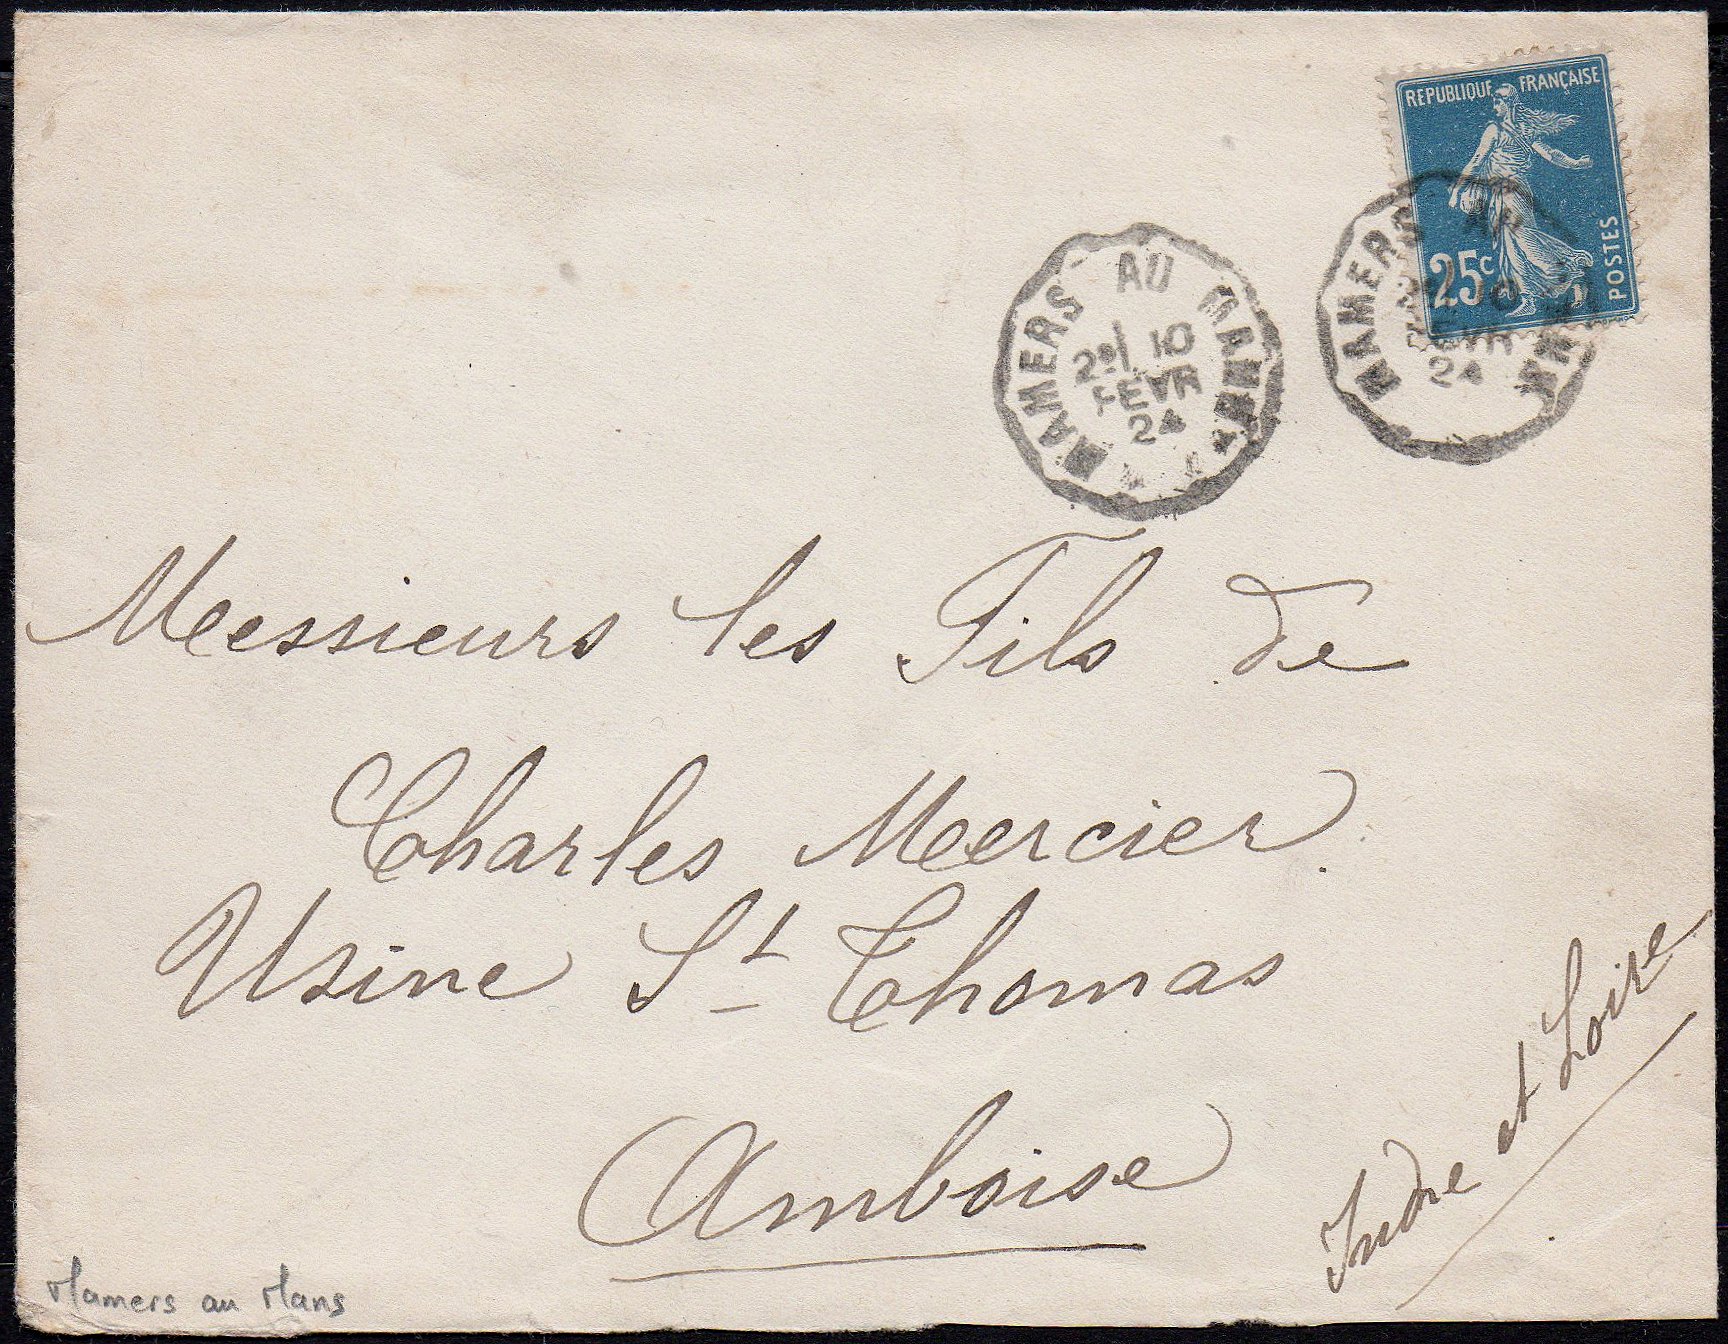 REPUBLIQUE FRANÇAISE
25c
POSTES
MAMERS AU MANS
2E 10
FEVR
24
MAMERS AU MANS
10
FEVR
24
Messieurs les Fils de
Charles Mercier
Usine St Thomas
Amboise
Indre et Loire
Mamers au Mans